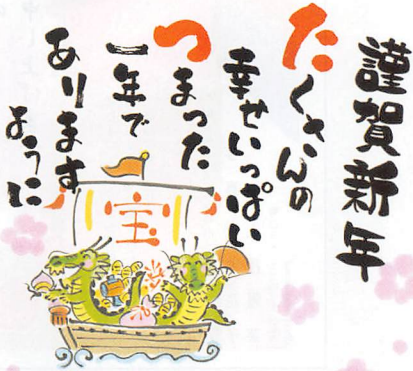 謹賀新年
たくさんの
幸せいっぱい
つまった
一年で
あります
ように
宝